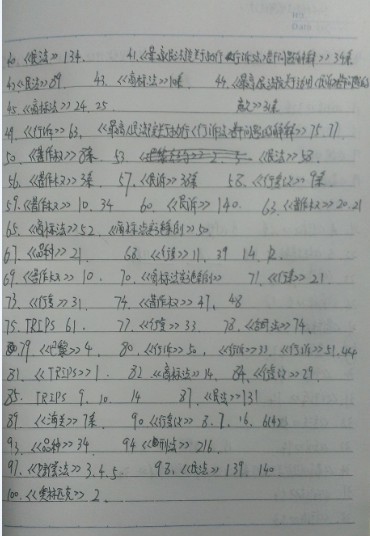 40.《民法》134. 41.《最高人民法院关于执行《行诉法》若干问题的解释》34条
42.《民法》89 43.《商标法》10条 44.《最高人民法院关于适用《民诉》若干问题的
45.《商标法》24.25 意见》31条
49.《行诉》63,《最高人民法院关于执行《行诉法》若干问题的解释》75.77
50.《著作权》8条 53. 《民法》58
56.《著作权》3条 57.《民诉》38条 58.《行复议》9条
59.《著作权》10.34 60.《民诉》140. 63.《著作权》20.21
65.《商标法》52.《商标法实施条例》50
67.《品种》21 68.《行复》11.39 14.
69.《著作权》10. 70.《商标法实施条例》 71.《行复》21
73.《行复》31. 74.《著作权》47.48
75.TRIPS 61. 77.《行复》33. 78.《合同法》74
79.《巴黎》4. 80.《行诉》50.《行诉》33.《行诉》51.44
81.《TRIPS》1. 82.《商标法》14. 84.《行复议》29.
85.TRIPS 9.10. 14 87.《民法》131
89.《海关》7条 90《行复议》8.7.16.6(4)
93.《品种》34 94《刑法》216
97.《 》3.4.5 98.《民法》139 140
100.《奥林匹克》2